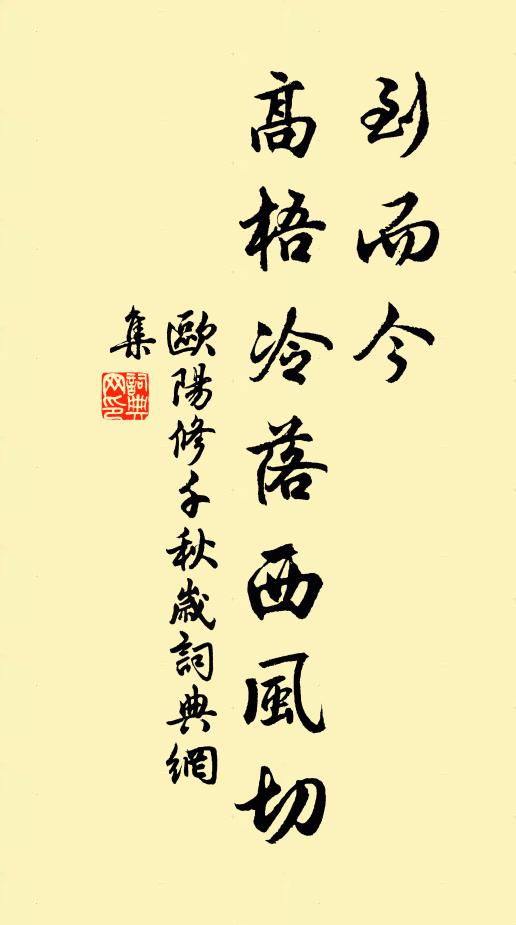 到而今
高梧冷落西風切
歐陽修千秋歲詞典網
集
詞典
网印